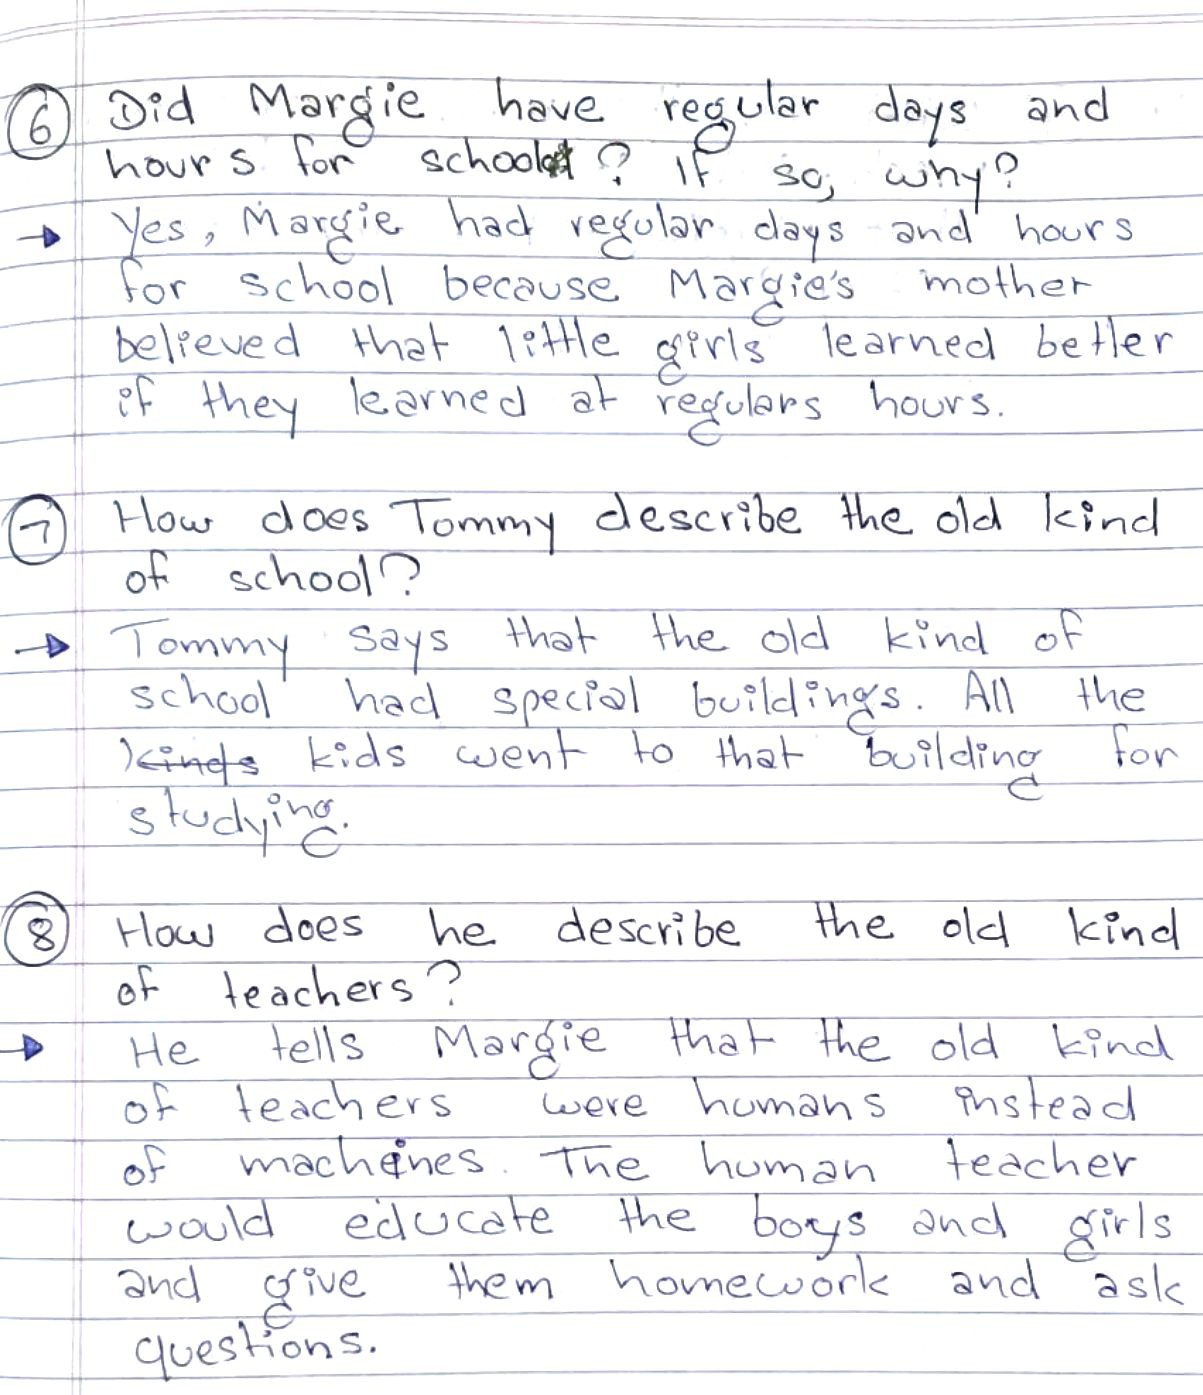 6 Did Margie have regular days and
hours for school? If so, why?
→ Yes, Margie had regular days and hours
for school because Margie's mother
believed that little girls learned better
if they learned at regulars hours.
7 How does Tommy describe the old kind
of school?
→ Tommy says that the old kind of
school had special buildings. All the
kinds kids went to that building for
studying.
8 How does he describe the old kind
of teachers?
→ He tells Margie that the old kind
of teachers were humans instead
of machines. The human teacher
would educate the boys and girls
and give them homework and ask
questions.